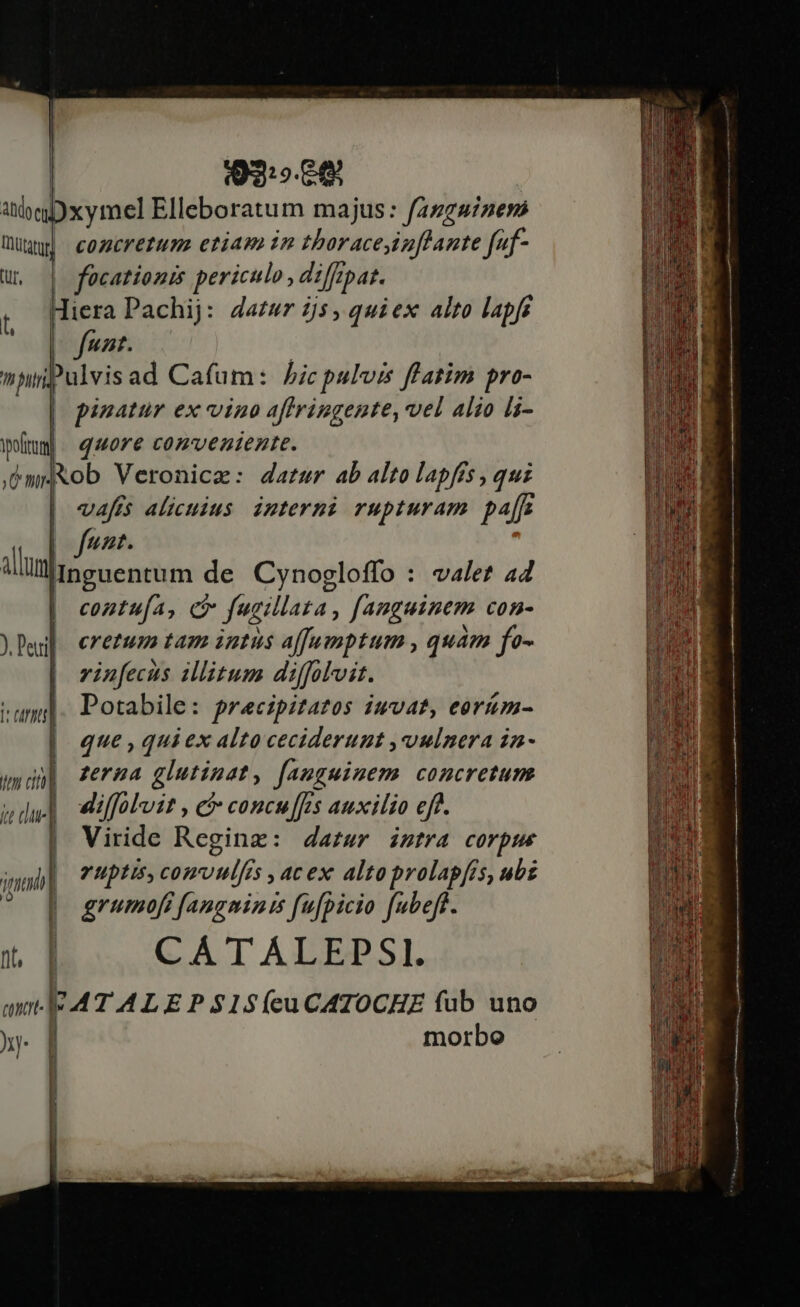 Oxymel Elleboratum majus: ſanguinem
concretum etiam in thorace, inſtante ſuf-
focationis periculo, diſſipat.
Hiera Pachij: datur ijs, qui ex alto lapſi
ſunt.
Pulvis ad Caſum: hic pulvis ſtatim pro-
pinatur ex vino aſtringente, vel alio li-
quore conveniente.
Rob Veronicæ: datur ab alto lapſis, qui
vaſis alicuius interni rupturam paſſi
ſunt.
Unguentum de Cynogloſſo: valet ad
contuſa, & ſugillata, ſanguinem con-
cretum tam intùs aſſumptum, quàm fo-
rinſecùs illitum diſſolvit.
Potabile: præcipitatos iuvat, eorúm-
que, qui ex alto ceciderunt, vulnera in-
terna glutinat, ſanguinem concretum
diſſolvit, & concuſſis auxilio eſt.
Viride Reginæ: datur intra corpus
ruptis, convulſis, ac ex alto prolapſis, ubi
grumoſi ſanguinis ſuſpicio ſubeſt.
CATALEPSI.
CATALEPSIS ſeu CATOCHE ſub uno
morbo